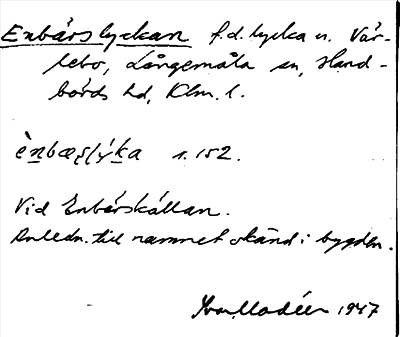 Enbärslyckan f.d. lycka u. Vår-
lebo, Långemåla sn, Hand-
börds hd, Klm. l.
ènbæʂlýka s. 152.
Vid Enbärskällan.
Anledn. till namnet okänd i bygden.
1947